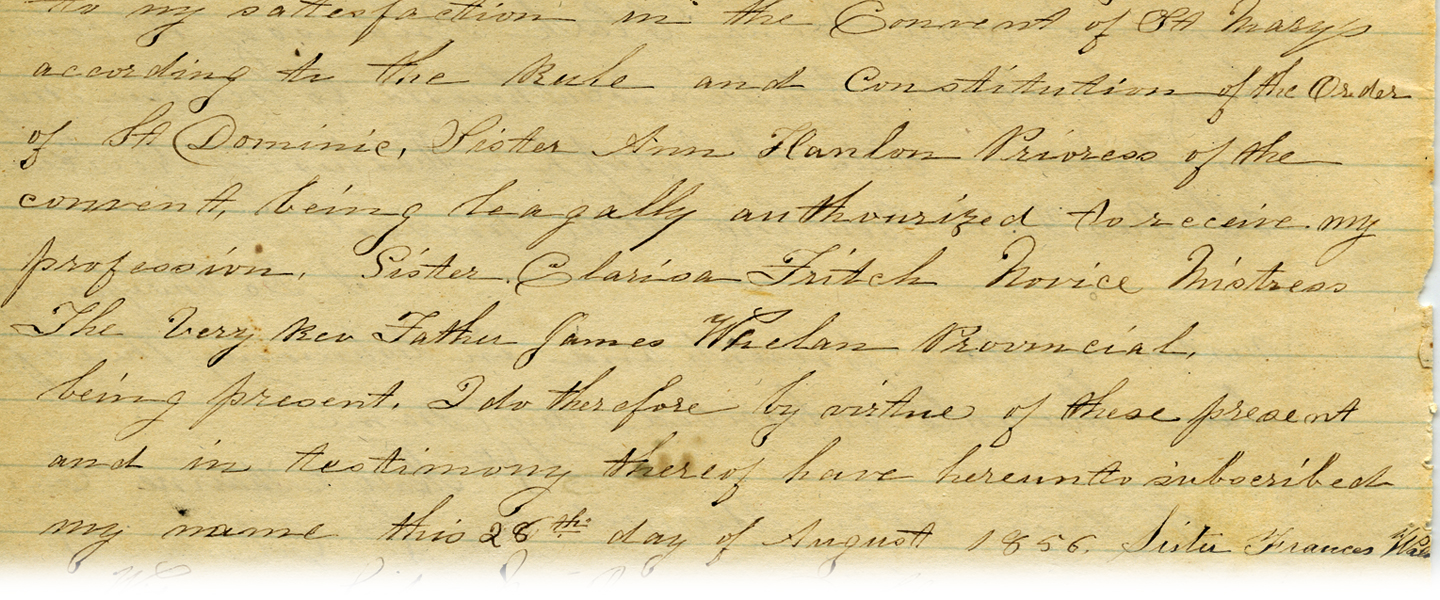 to my satesfaction in the Convent of St Marys
according to the Rule and Constitution of the Order
of St Dominic, Sister Ann Hanlon Prioress of the
convent, being leagally authourized to receive my
profession, Sister Clarisa Fritch Novice Mistress
The Very Rev Father James Whelan Provincial,
being present. I do therefore by virtue of these present
and in testimony thereof have hereunto subscribed
my name this 28th day of August 1856. Sister Frances